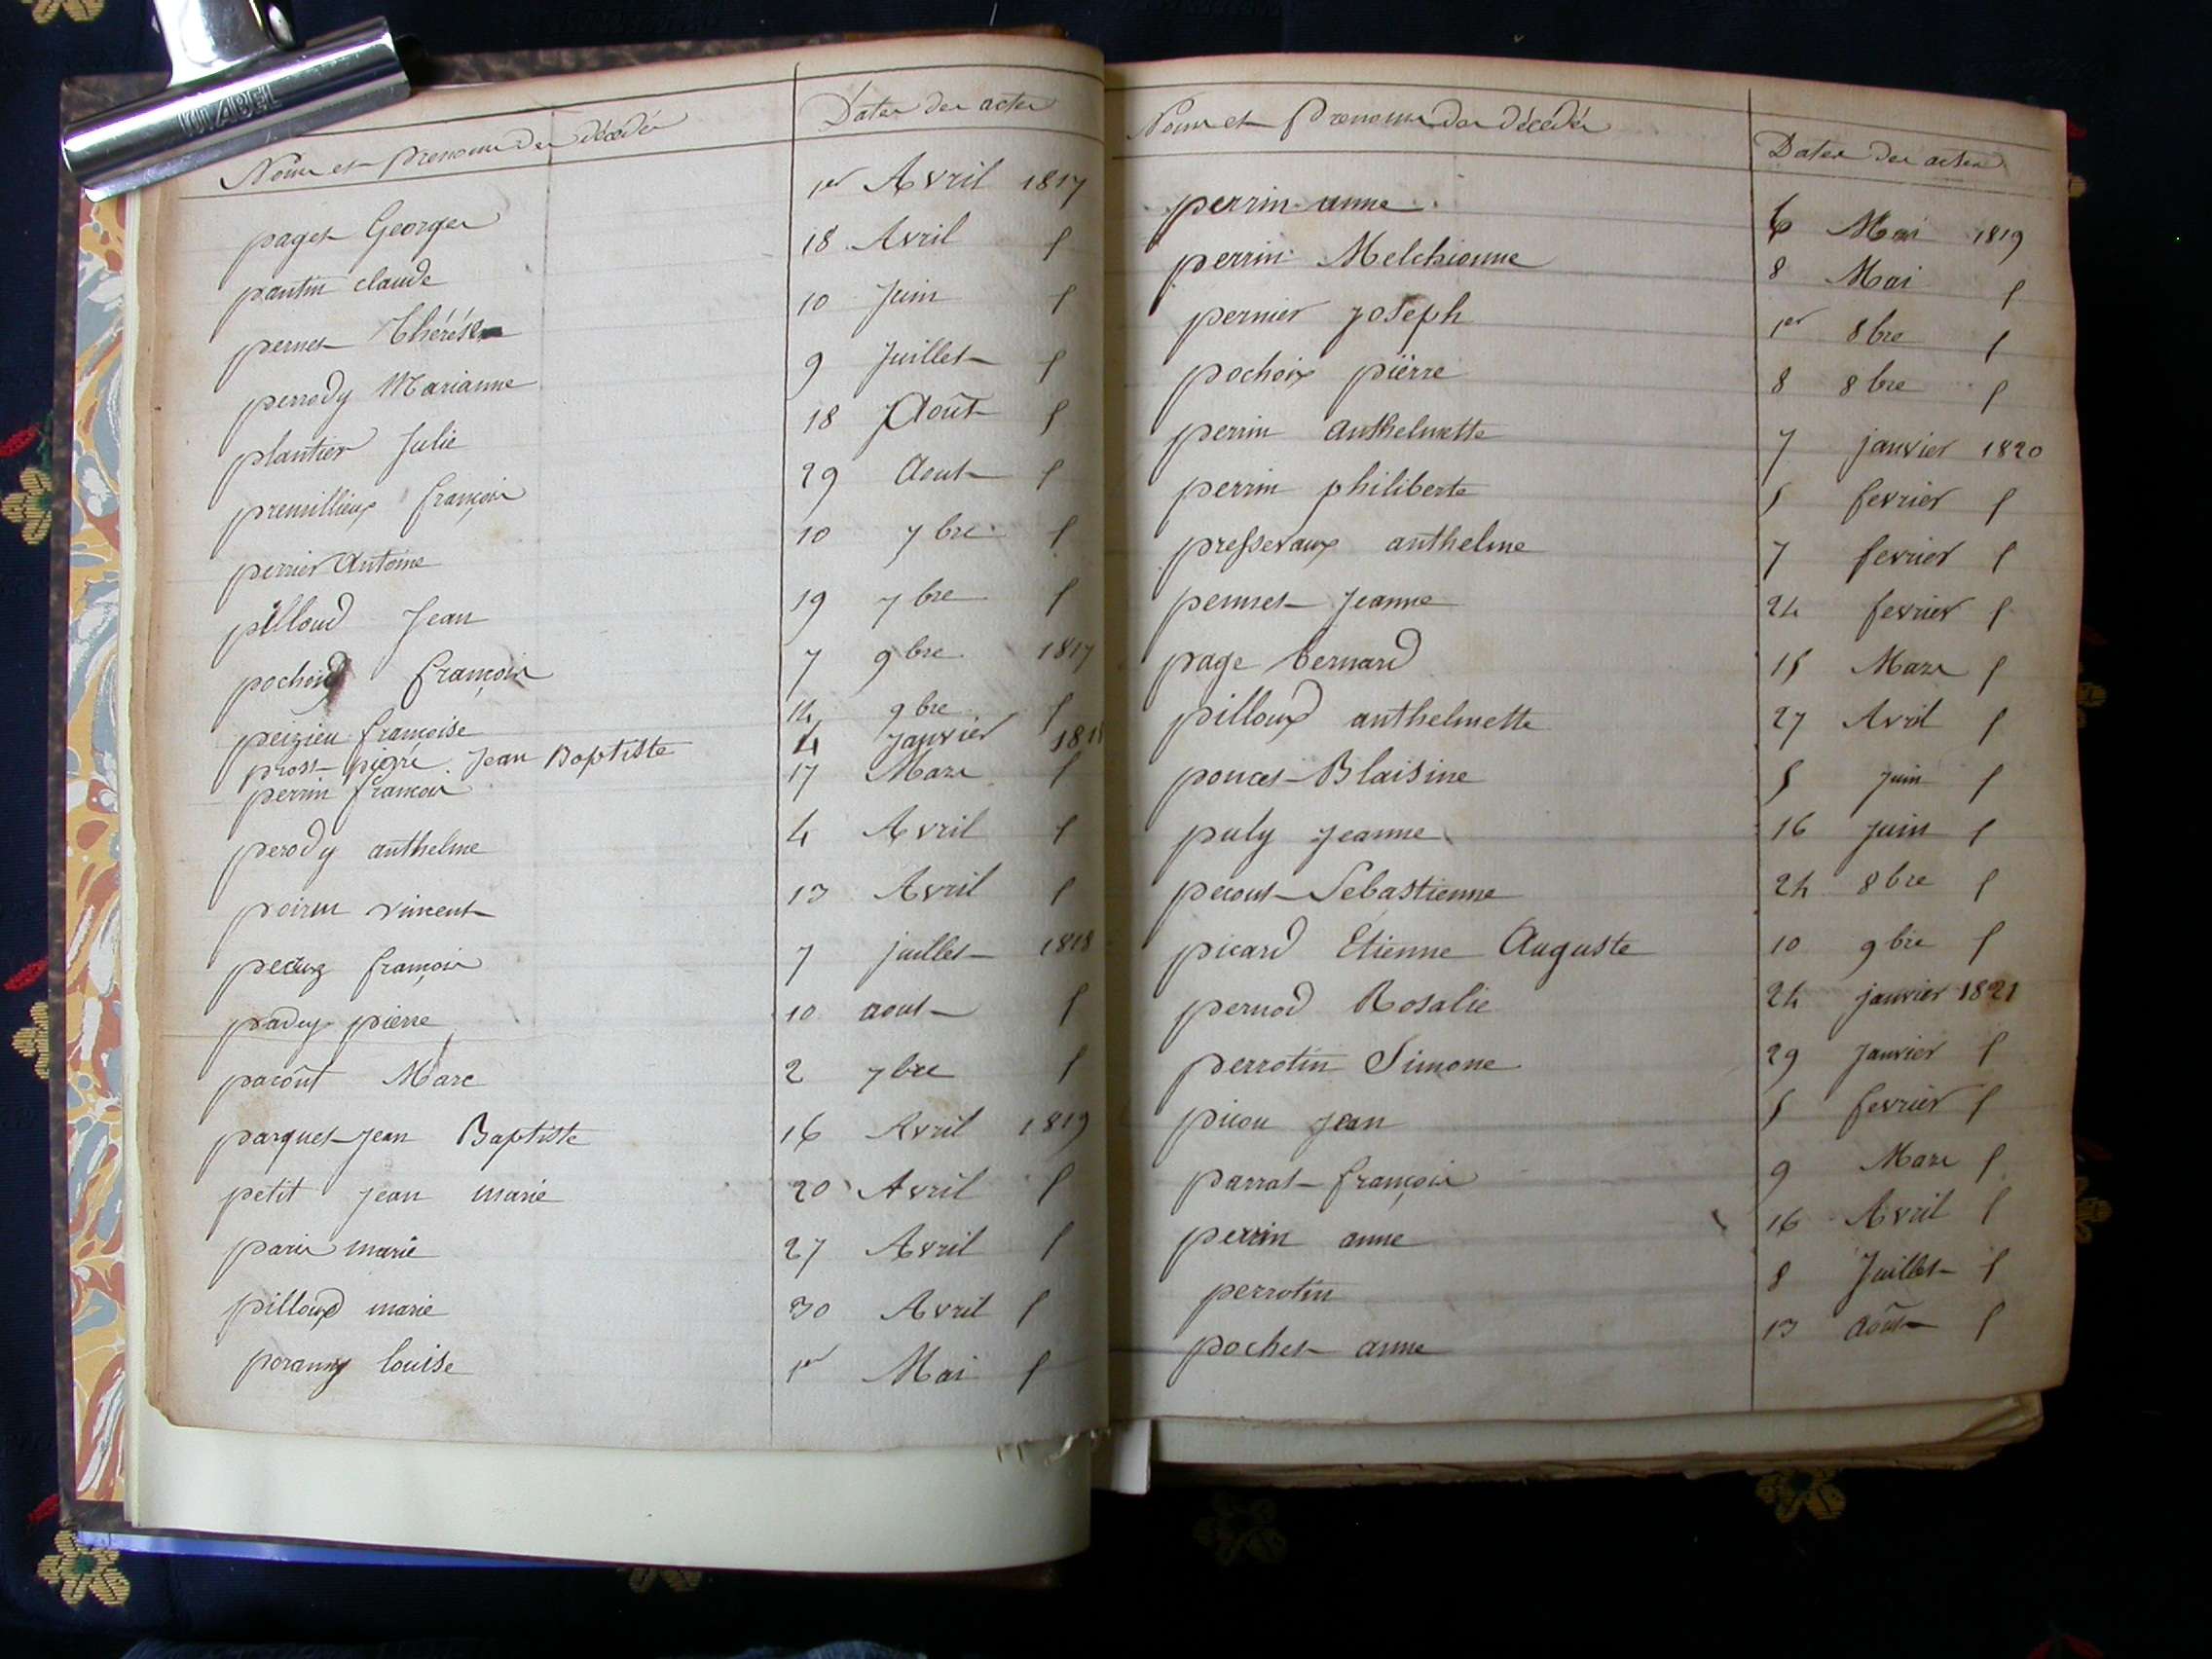 Noms et prenoms des décédés Dates des actes
paget Georges 1er Avril 1817
pantin claude 18 Avril
pernet Thérése 10 Juin
perrody Marianne 9 Juillet
plantier Julie 18 Août
premillieux françois 29 Aout
perrier Antoine 10 7bre
pilloud Jean 19 7bre
françois 7 9bre 1817
peizieu françoise 14 9bre
prost pigré Jean Baptiste 4 Janvier 1818
perrin françois 17 Mars
perody anthelme 4 Avril
vincent 13 Avril
françois 7 juillet 1818
padey pierre 10 aout
pacout Marc 2 7bre
parquet Jean Baptiste 16 Avril 1819
petit jean marie 20 Avril
paris marie 27 Avril
pilloux marie 30 Avril
louise 1er Mai
Noms et Prenoms des décédés Dates des actes
perrin anne 6 Mai 1819
perrin Melchionne 8 Mai
pernier joseph 1er 8bre
pochoix pierre 8 8bre
perrin anthelmette 7 janvier 1820
perrin philiberte 5 fevrier
pressevaux anthelme 7 fevrier
pernet Jeanne 24 fevrier
page bernard 15 Mars
pilloux anthelmette 27 Avril
poncet Blaisine 5 juin
puly jeanne 16 juin
pecout Sebastienne 24 8bre
picard Etienne Auguste 10 9bre
pernod Rosalie 24 janvier 1821
perrotin Simone 29 Janvier
picou jean 5 fevrier
parrat françois 9 Mars
perrin anne 16 Avril
perrotin 8 Juillet
pochet anne 13 août